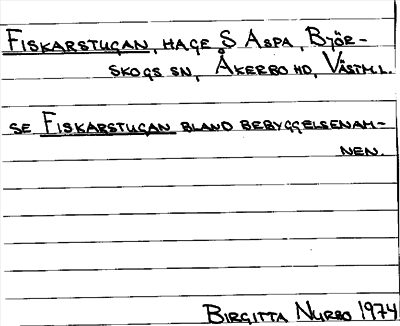 FISKARSTUGAN, HAGE S ASPA, BJÖR-
SKOGS SN, ÅKERBO HD, VÄSTM.L.
SE FISKARSTUGAN BLAND BEBYGGELSENAM-
NEN.
BIRGITTA NURBO 1974